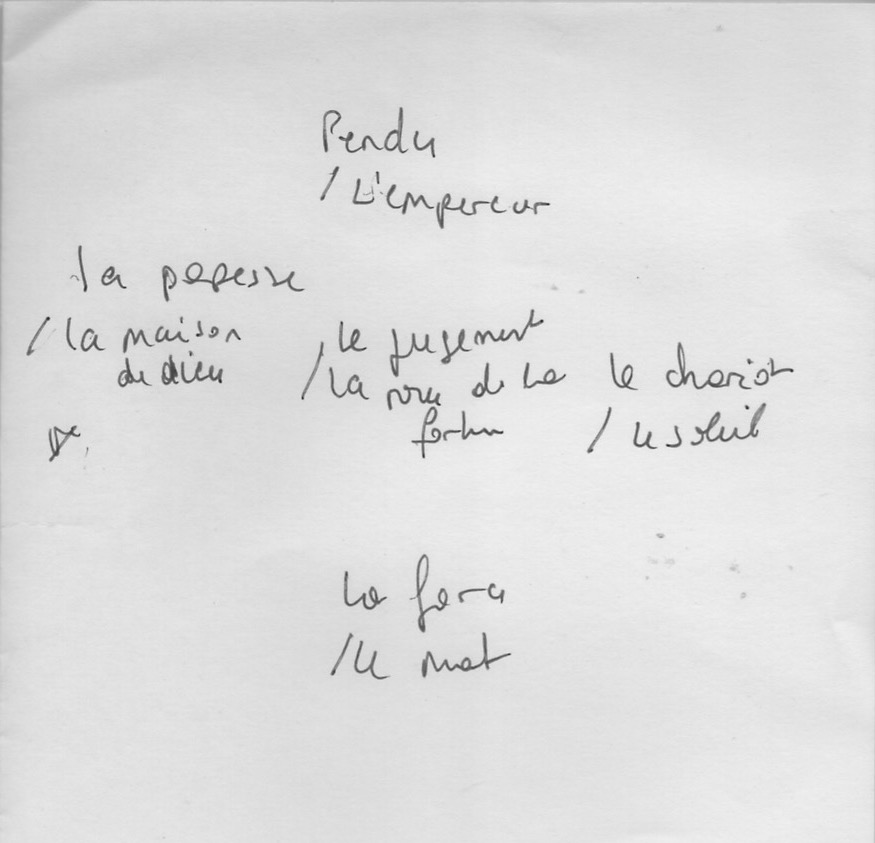 Pendu
/ L'empereur
la papesse
/ la maison
de dieu
le jugement
/ la roue de la
fortune
le chariot
/ le soleil
la force
/ le mat